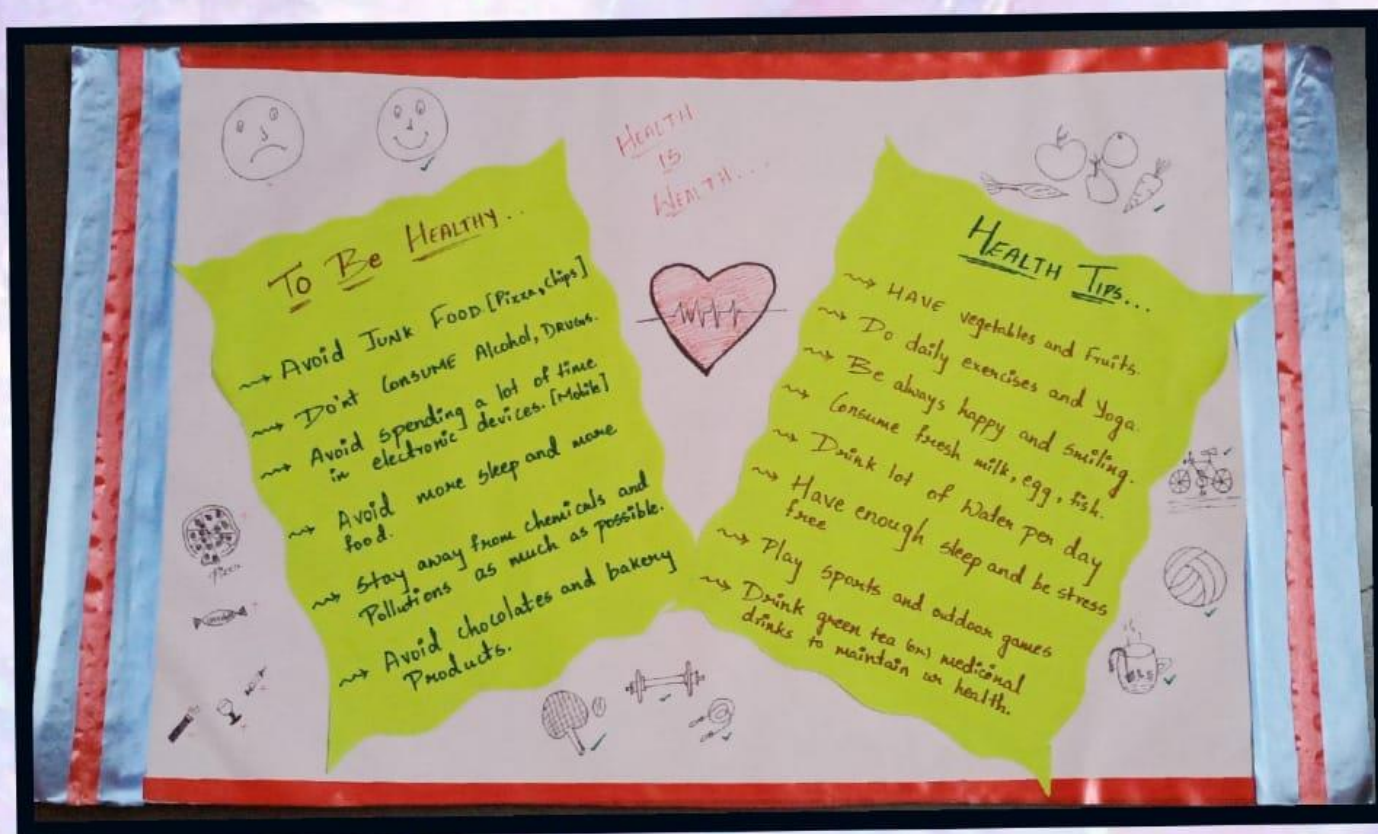 HEALTH
IS
WEALTH...
TO BE HEALTHY...
Avoid JUNK FOOD.[Pizza, Chips]
Do'nt CONSUME Alcohol, DRUGS.
Avoid spending a lot of time
in electronic devices. [Mobile]
Avoid more sleep and more
food.
Stay away from chemicals and
Pollutions as much as possible.
Avoid chocolates and bakery
Products.
Pizza
HEALTH TIPS...
HAVE vegetables and Fruits.
Do daily exercises and Yoga.
Be always happy and smiling.
Consume fresh milk, egg, fish.
Drink lot of Water per day
Have enough sleep and be stress
free
Play sports and outdoor games
Drink green tea (or) medicinal
drinks to maintain ur health.